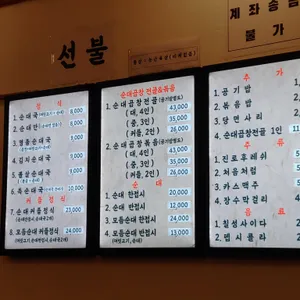 선불
계좌송금
불가
정식
1. 순대국 8,000
2. 순대만 8,000
3. 명품순대국 9,000
4. 김치순대국 9,000
5. 통살순대국 9,000
6. 특순대국 10,000
커플정식
7. 순대커플정식 23,000
8. 모듬순대커플정식 24,000
순대곱창전골&볶음
1. 순대곱창전골(공기밥별도)
(대, 4인) 43,000
(중, 3인) 35,000
(커플, 2인) 26,000
2. 순대곱창볶음(공기밥별도)
(대, 4인) 43,000
(중, 3인) 35,000
(커플, 2인) 26,000
순대
1. 순대 한접시 20,000
2. 순대 반접시 12,000
3. 모듬순대 한접시
4. 모듬순대 반접시 13,000
추가
1. 공기밥
2. 볶음밥
3. 당면사리
4. 순대곱창전골 1인 11,000
주류
1. 진로후레쉬
2. 처음처럼
3. 카스맥주
4. 장수막걸리
음료
1. 칠성사이다
2. 펩시콜라